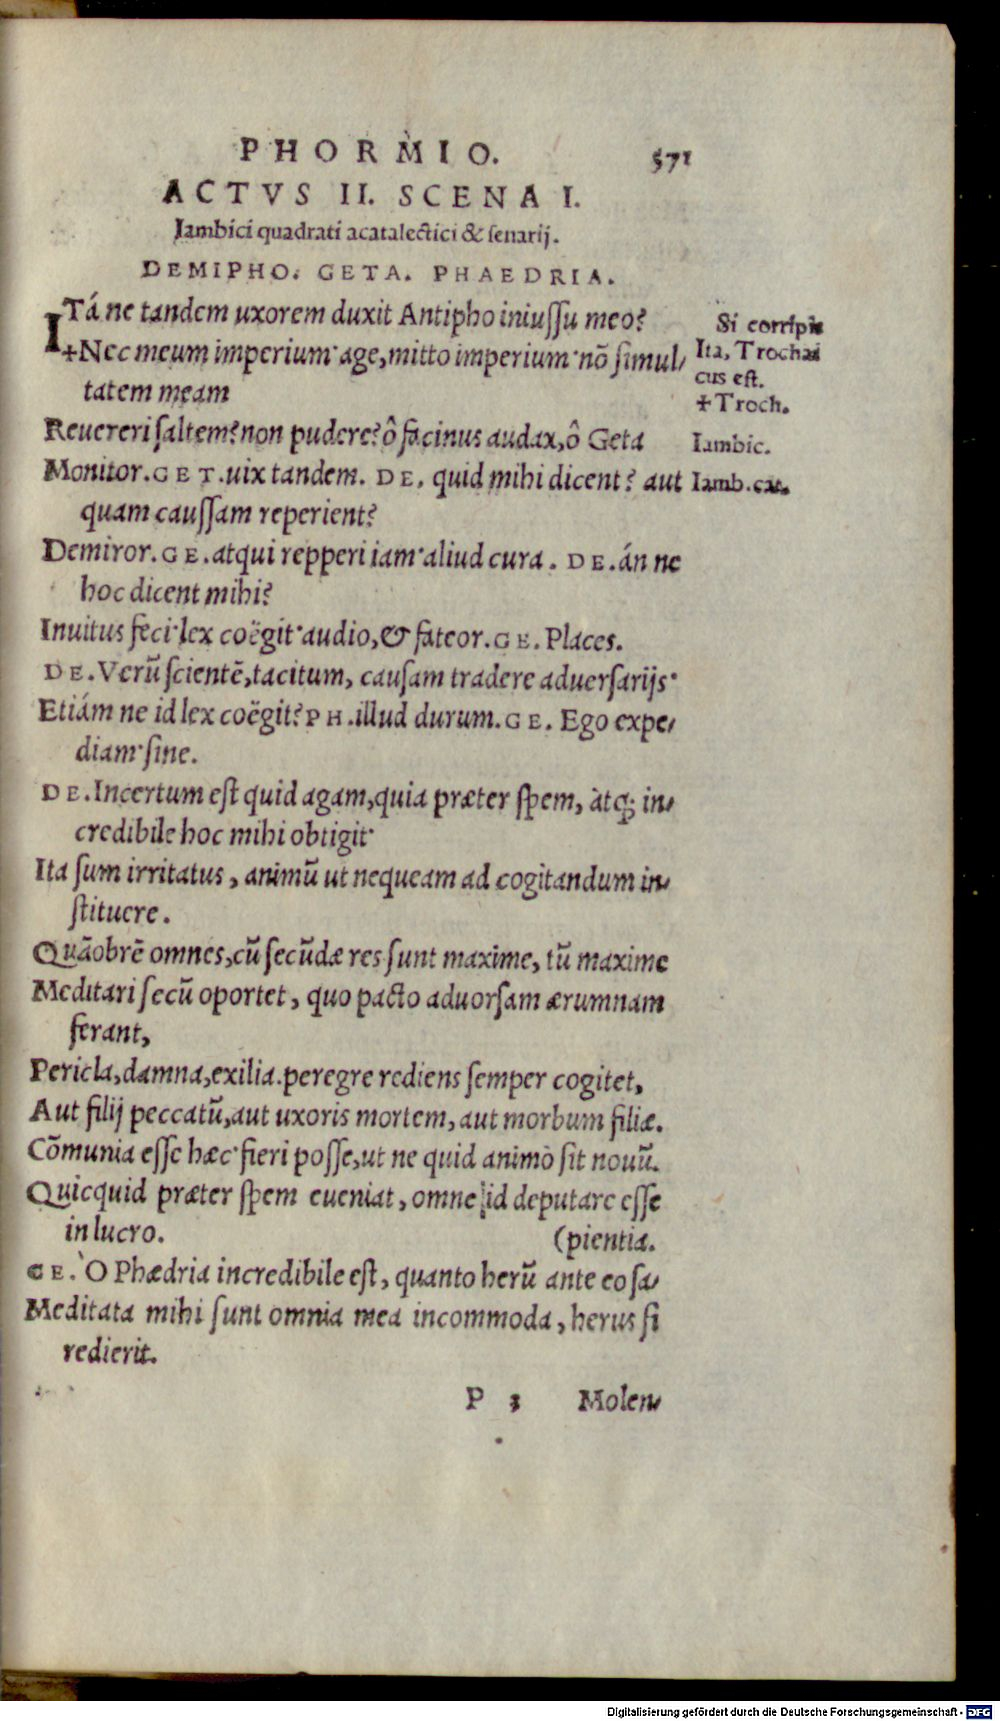 PHORMIO. 571
ACTVS II. SCENA I.
Iambici quadrati acatalectici & senarij.
DEMIPHO. GETA. PHAEDRIA.
ITá ne tandem uxorem duxit Antipho iniussu meo?
Si corripis
+Nec meum imperium· age, mitto imperium· nō simul/
Ita, Trochai
cus est.
tatem meam
+Troch.
Reuereri saltem? non pudere? ô facinus audax, ô Geta
Iambic.
Monitor. GET. uix tandem. DE. quid mihi dicent? aut
Iamb. cat.
quam caussam reperient?
Demiror. GE. atqui repperi iam· aliud cura. DE. án ne
hoc dicent mihi?
Inuitus feci· lex coëgit· audio, & fateor. GE. Places.
DE. Verū scientē, tacitum, causam tradere aduersarijs·
Etiám ne id lex coëgit? PH. illud durum. GE. Ego expe/
diam· sine.
DE. Incertum est quid agam, quia præter spem, atq; in/
credibile hoc mihi obtigit·
Ita sum irritatus, animū ut nequeam ad cogitandum in/
stituere.
Quāobrē omnes, cū secūdæ res sunt maxime, tū maxime
Meditari secū oportet, quo pacto aduorsam ærumnam
ferant,
Pericla, damna, exilia. peregre rediens semper cogitet,
Aut filij peccatū, aut uxoris mortem, aut morbum filiæ.
Cōmunia esse hæc· fieri posse, ut ne quid animo sit nouū.
Quicquid præter spem eueniat, omne id deputare esse
in lucro. (pientia.
GE. Ò Phædria incredibile est, quanto herū ante eo sa/
Meditata mihi sunt omnia mea incommoda, herus si
redierit.
P 3 Molen/
Digitalisierung gefördert durch die Deutsche Forschungsgemeinschaft - DFG